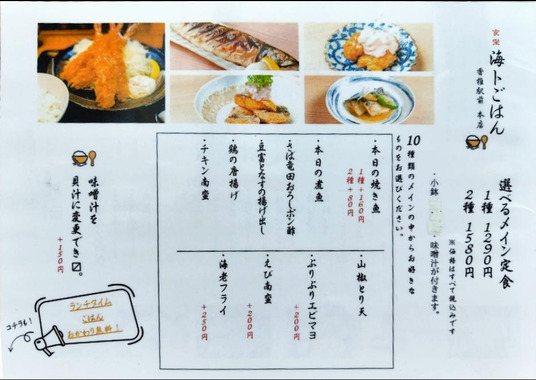 食堂
海トごはん
香椎駅前 本店
選べるメイン定食
1種 1290円
2種 1580円
※価格はすべて税込みです
・小鉢
味噌汁が付きます。
10種類のメインの中からお好きな
ものをお選びください。
・本日の焼き魚
1種+160円
2種+80円
・本日の煮魚
・さば竜田おろしポン酢
・豆富となすの揚げ出し
・鶏の唐揚げ
・チキン南蛮
・山椒とり天
・ぷりぷりエビマヨ
+200円
・えび南蛮
+200円
・海老フライ
+250円
味噌汁を
貝汁に変更でき〼。
+150円
ランチタイム
ごはん
おかわり無料!
コチラも!